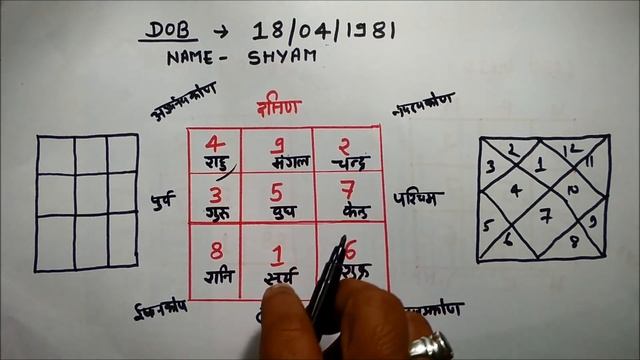 DOB → 18/04/1981
NAME - SHYAM
दक्षिण
4 9 2
राहु मंगल चन्द्र
3 5 7
पुर्व गुरु बुध केतु पश्चिम
8 1 6
शनि सूर्य शुक्र
2 12
3 1 11
4 10
5 7 9
6 8